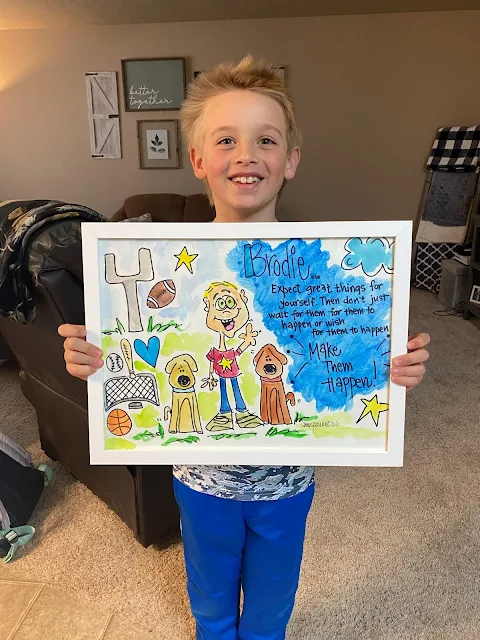 better
together
Brodie...
Expect great things for
yourself. Then don't just
wait for them for them to
happen or wish
for them to happen
Make
Them
Happen!